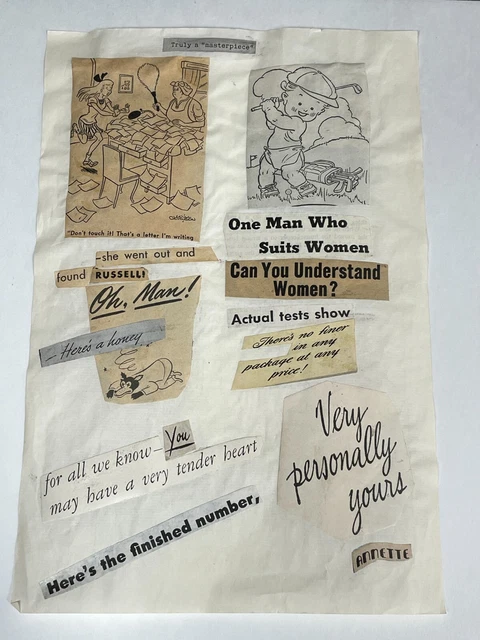 Truly a "masterpiece"
"Don't touch it! That's a letter I'm writing
—she went out and
found RUSSELL!
Oh, Man!
— Here's a honey
for all we know— You
may have a very tender heart
Here's the finished number,
One Man Who
Suits Women
Can You Understand
Women?
Actual tests show
There's no finer
in any
package at any
price!
Very
personally
yours
ANNETTE